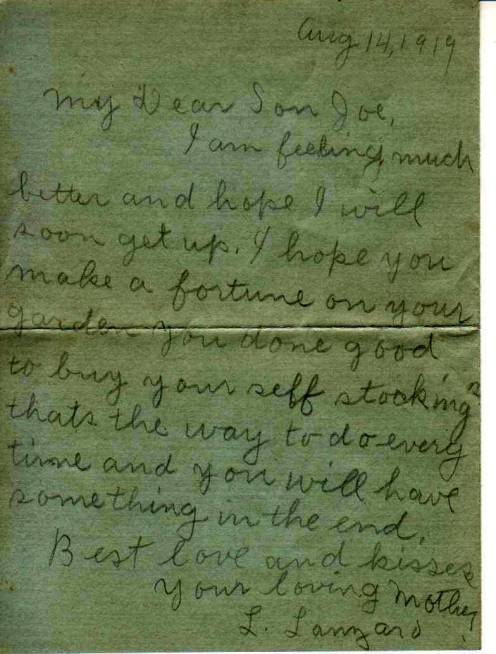 Aug 14, 1919
My Dear Son Joe,
I am feeling much
better and hope I will
soon get up. I hope you
make a fortune on your
garden you done good
to buy your self stockings
thats the way to do every
time and you will have
something in the end.
Best love and kisses
Your loving Mother
L. Lanzaro